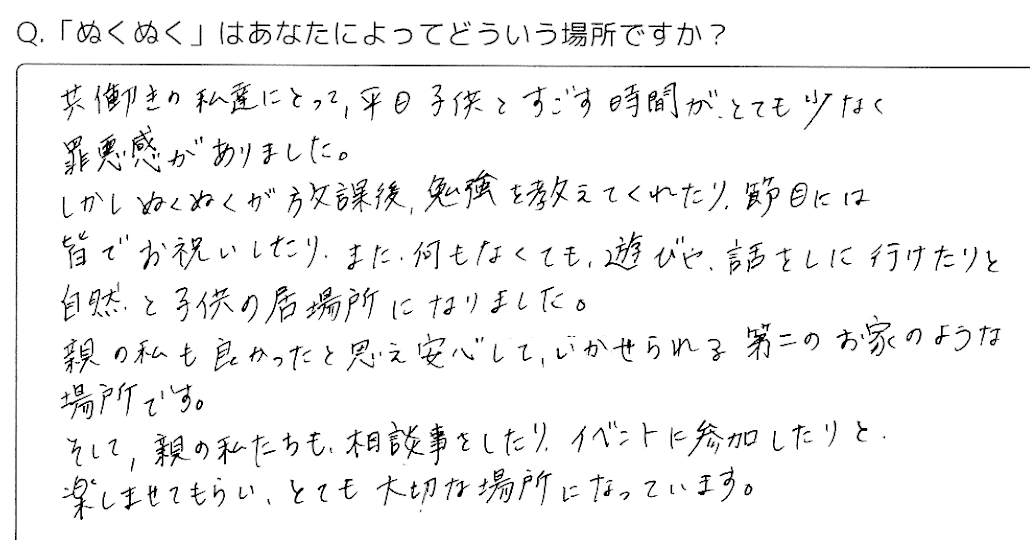 Q.「ぬくぬく」はあなたによってどういう場所ですか？
共働きの私達にとって、平日子供とすごす時間が、とても少なく
罪悪感がありました。
しかしぬくぬくが放課後、勉強を教えてくれたり、節目には
皆でお祝いしたり、また、何もなくても、遊びや、話をしに行けたりと
自然と子供の居場所になりました。
親の私も良かったと思え安心して、いかせられる第二のお家のような
場所です。
そして、親の私たちも、相談事をしたり、イベントに参加したりと、
楽しませてもらい、とても大切な場所になっています。